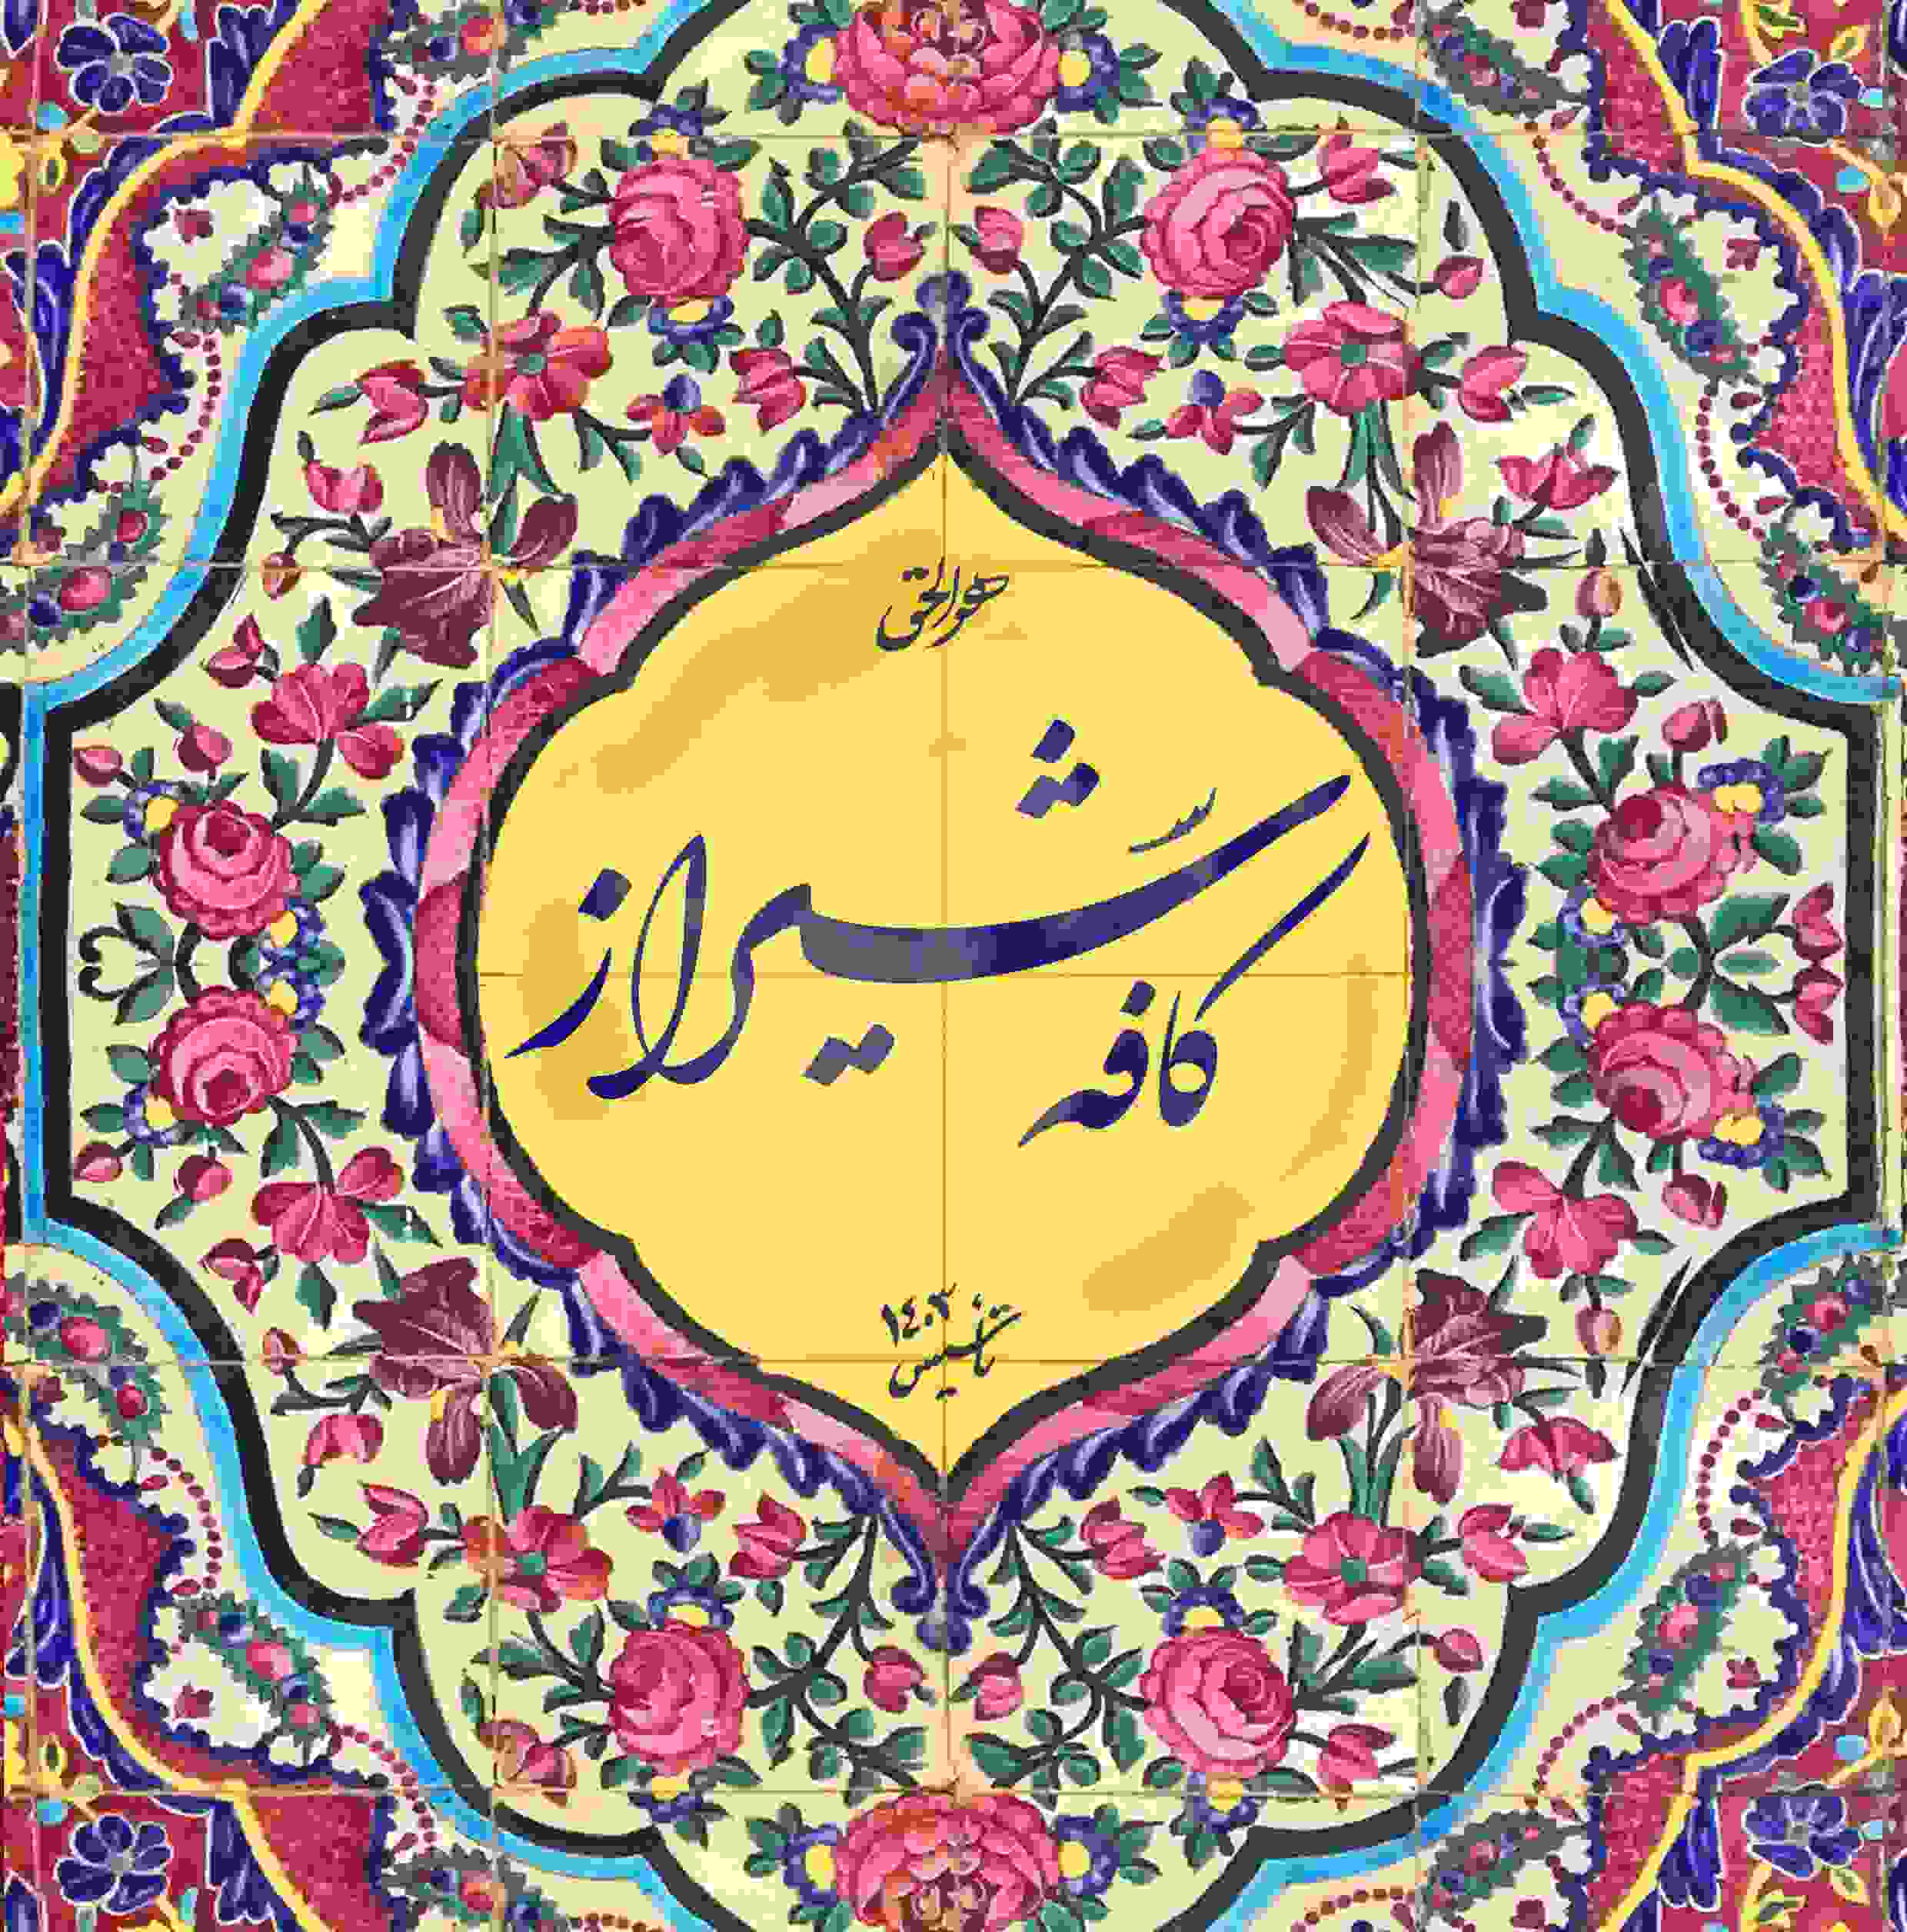 هوالحق
کافه شیراز
تأسیس ۱۴۰۳